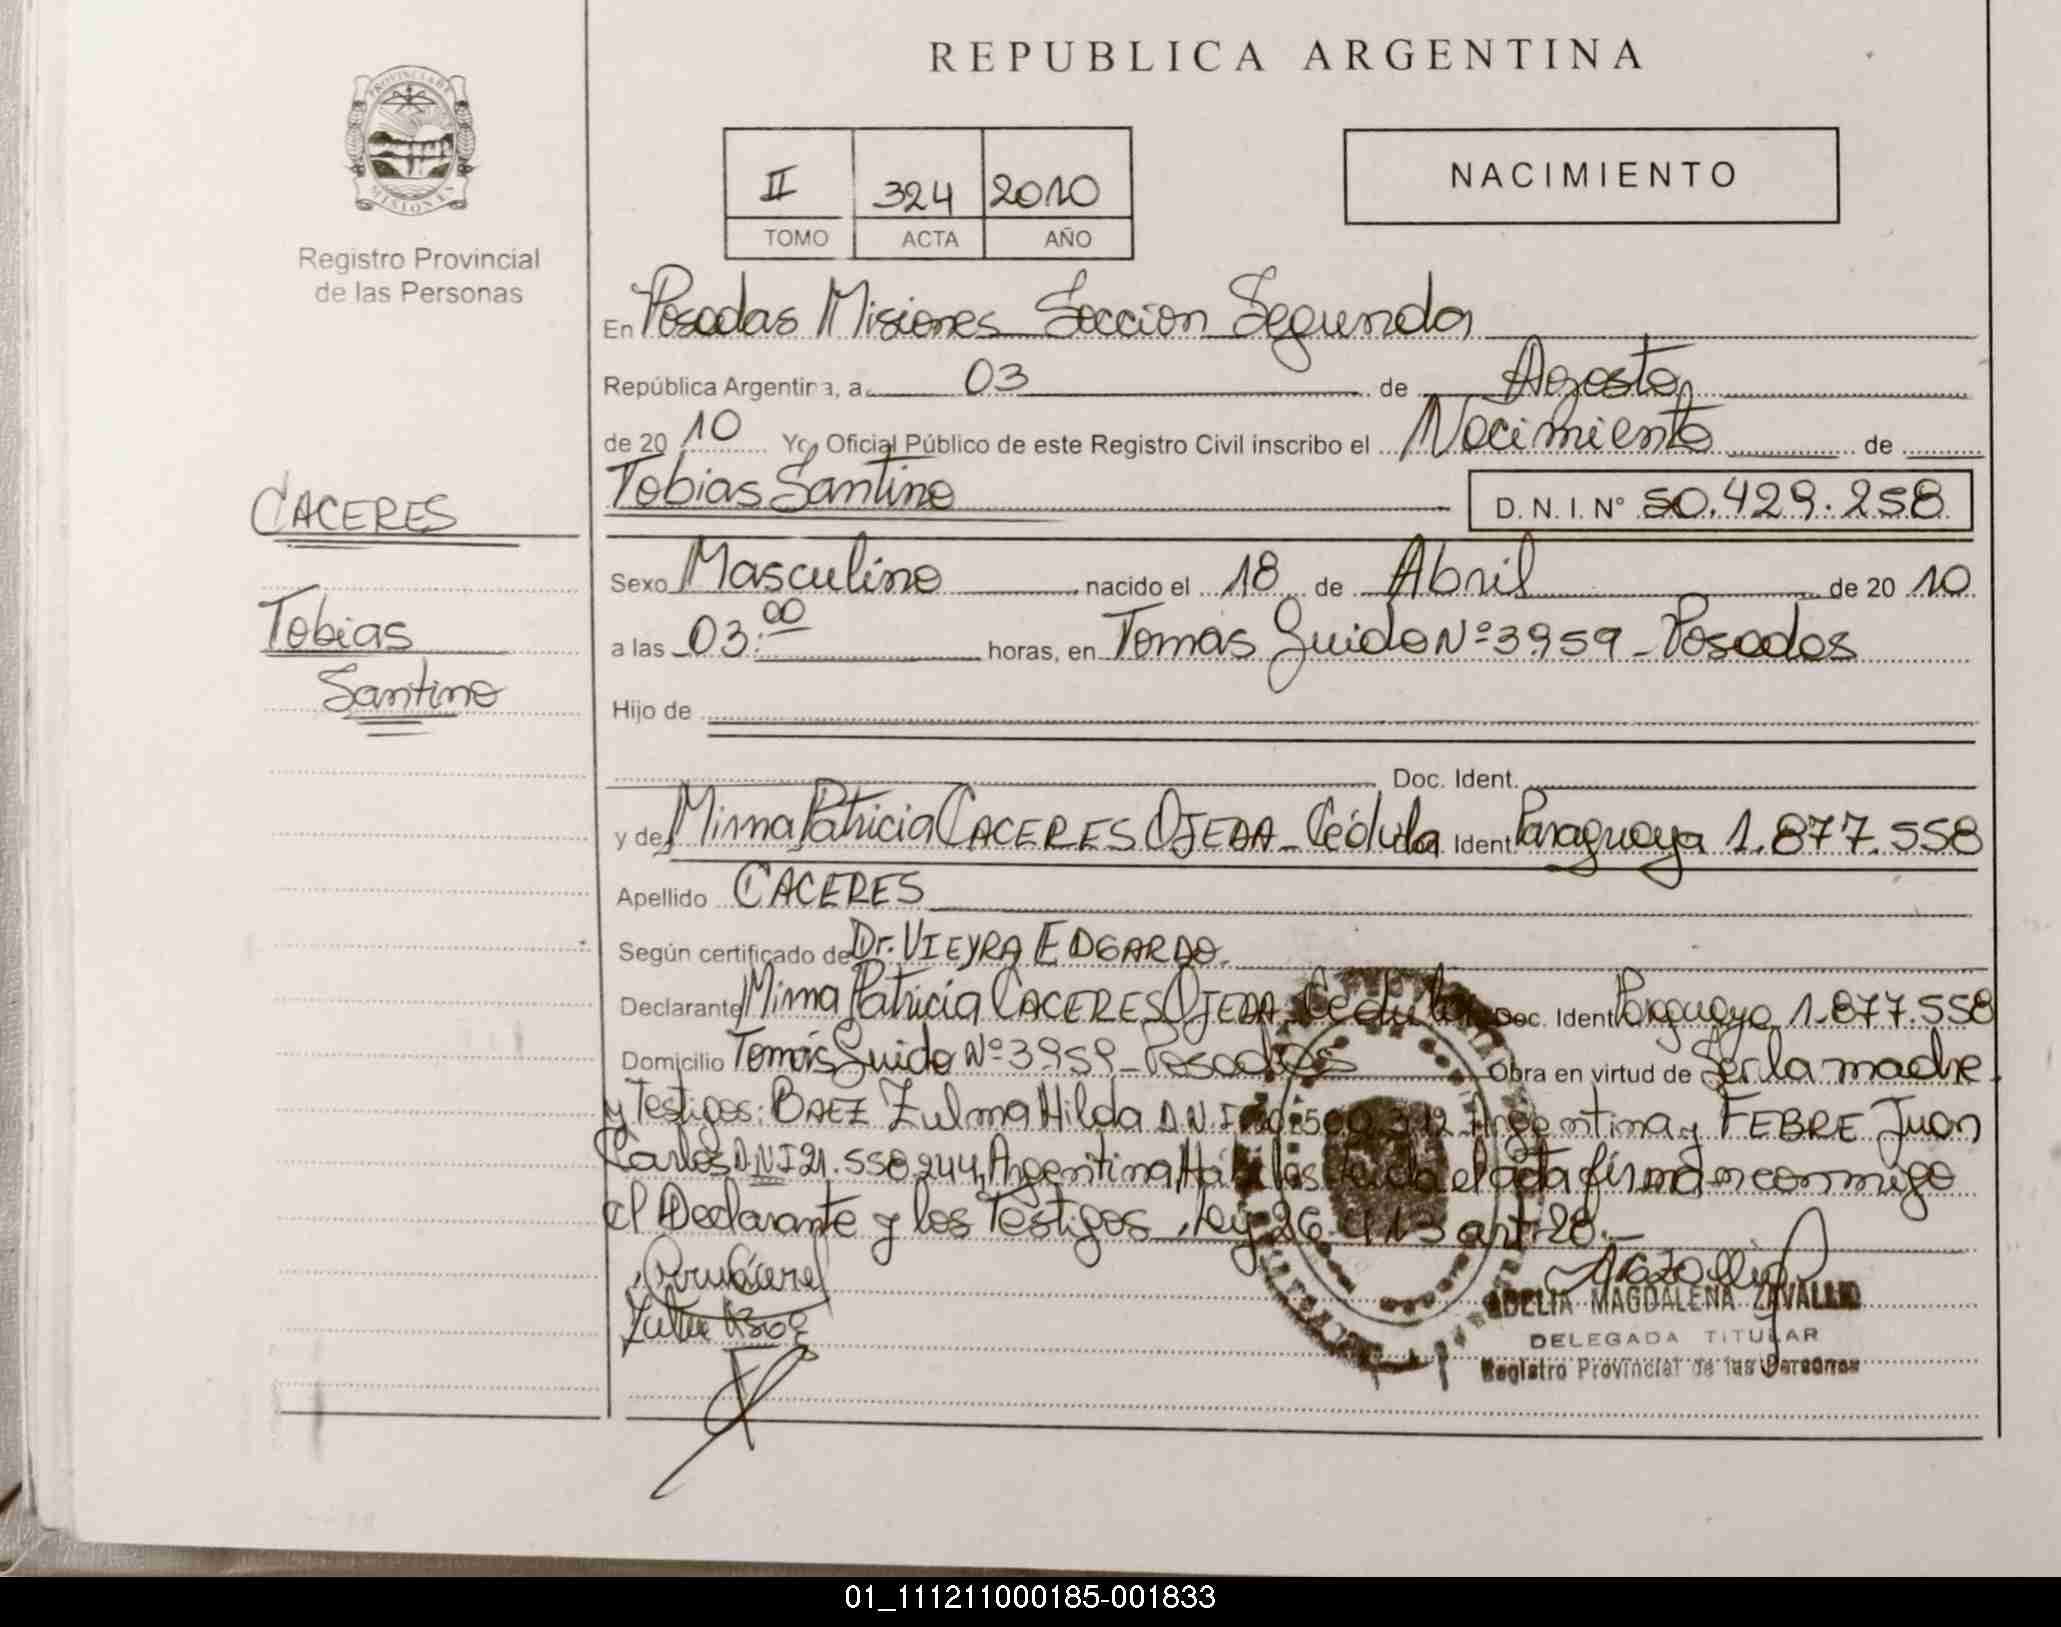 REPUBLICA ARGENTINA
PROVINCIA DE
MISIONES
Registro Provincial
de las Personas
II 324 2010
TOMO ACTA AÑO
NACIMIENTO
En Posadas Misiones Seccion Segunda
República Argentina, a 03 de Agosto
de 20 10 Yo, Oficial Público de este Registro Civil inscribo el Nacimiento de
CACERES
Tobias Santino
D. N. I. Nº 50.429.258
Sexo Masculino nacido el 18 de Abril de 20 10
Tobias
Santino
a las 03:00 horas, en Tomás Guido Nº 3959 - Posadas
Hijo de
Doc. Ident.
y de Mirna Patricia CACERES OJEDA - Cédula Ident Paraguaya 1.877.558
Apellido CACERES
Según certificado de Dr. VIEYRA EDGARDO
Declarante Mirna Patricia CACERES OJEDA Cédula Doc. Ident Paraguaya 1.877.558
Domicilio Tomás Guido Nº 3959 - Posadas Obra en virtud de Ser la madre
y Testigos: BAEZ Zulma Hilda D.N.I Argentina y FEBRE Juan
Carlos D.N.I 21.558.244, Argentina, Hábiles Leida el acta firman conmigo
el Declarante y los Testigos. Ley 26.413 art. 28.-
ADELIA MAGDALENA ZAVALLIO
DELEGADA TITULAR
Registro Provincial de las Personas
01_111211000185-001833